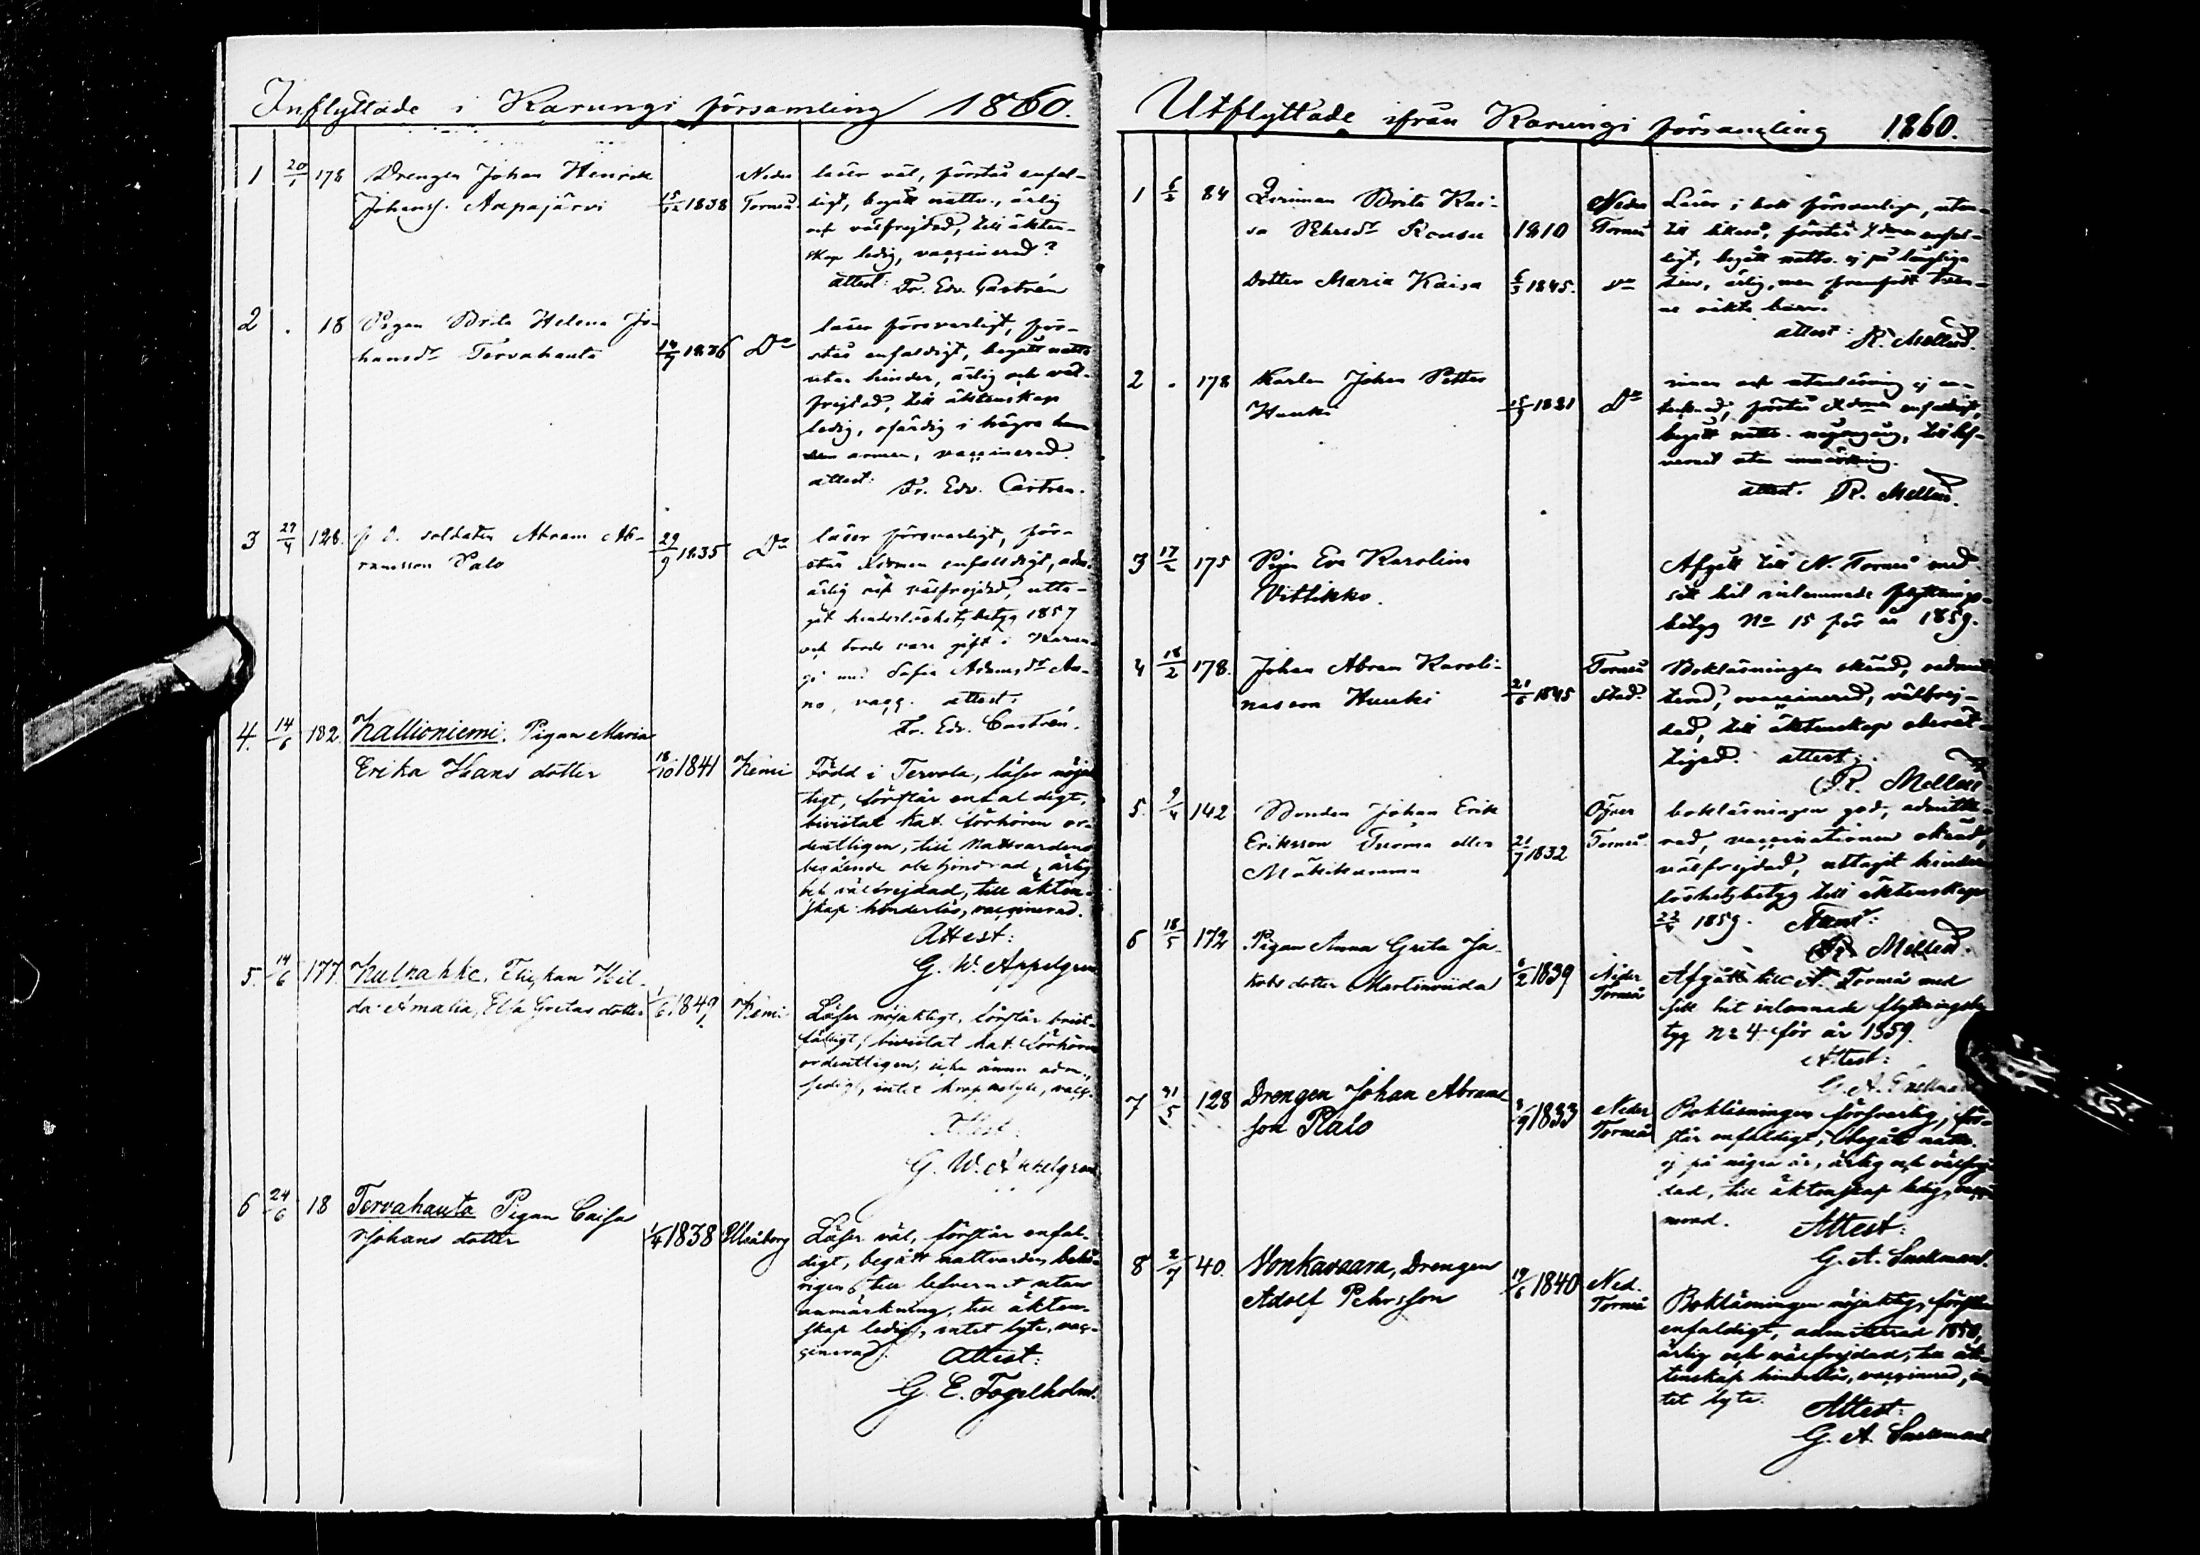 Inflyttade i Karungi församling 1860.
1 20/1 178 Drengen Johan Henrik
Johanss. Aapajärvi 15/12 1838 Neder Torneå
läser väl, förstår enfal-
digt, begått nattv., ärlig
och välfrejdad, till äkten-
skap ledig, vaccinerad?
attest: Fr. Edv. Castrén
2 . 18 Pigan Brita Helena Jo-
hansdr Tervahauta 14/7 1836 Do
läser försvarligt, för-
står enfaldigt, begått nattv.
utan hinder, ärlig och väl-
frejdad, till äktenskap
ledig, ofärdig i högra
armen, vaccinerad.
attest: Fr. Edv. Castrén.
3 27/4 128. f. d. soldaten Abram Ab-
ramsson Palo 29/9 1835 Do
läser försvarligt, för-
står enfaldigt, adm.
ärlig och välfrejdad, utta-
git hinderlöshetsbetyg 1857
och torde vara gift i Karun-
gi med Sofia Adamsdr
vacc. attest:
Fr. Edv. Castrén.
4. 14/6 182. Kallioniemi. Pigan Maria
Erika Hans dotter 18/10 1841 Kemi
Född i Tervola, läser nöjak
tigt, förstår enfaldigt,
bivistat kat. förhören or-
dentligen, till Nattvardens
begående obehindrad, ärlig
och välfrejdad, till äkten-
skap hinderlös, vaccinerad.
Attest:
G. W. Appelgren
5. 14/6 177. Flickan Hil-
da Amalia, Elsa Gretas dotter 1/6 1849 Kemi
Läser nöjaktigt, förstår brist-
fälligt, bivistat kat. förhören
ordentligen, icke ännu adm.,
intet vacc.
Attest:
G. W. Appelgren
6 24/6 18 Tervahauta Pigan Caisa
Johans dotter 1/4 1838 Uleåborg
Läser väl, förstår enfal-
digt, begått nattvarden behö-
rigen, till lefvernet utan
anmärkning, till äkten-
skap ledig, intet lyte, vac-
cinerad. Attest:
G. E. Fogelholm.
Utflyttade ifrån Karungi församling 1860.
1 6/2 84 Qvinnan Brita Kai-
sa 1810 Neder Torneå
Dotter Maria Kaisa 6/3 1845. Do
Läser i bok försvarligt, utan-
till likaså, förstår enfal-
digt, begått nattv. ej på långliga
tider, ärlig, men framfödt tven-
ne oäkta barn.
attest: R. Mellin.
2 . 178 Karlen Johan Petter
Huuki 1821 Do
innan och utanläsning ej an-
tecknad, förstår enfaldigt,
begått nattv. till lef-
vernet utan anmärkning.
attest. R. Mellin.
3 17/2 175 Pigan Eva Karolina
Vittikko.
Afgått till N. Torneå med
sitt hit inlemnade flyttnings-
betyg No 15 för år 1859.
4 18/2 178. Johan Abram Karoli-
nasson Huuki 21/6 1845 Torneå stad.
Bokläsningen okänd, oadmit
terad, ovaccinerad, välfrej-
dad, till äktenskap oberät-
tigad. attest:
R. Mellin
5. 9/4 142 Bonden Johan Erik
Eriksson eller
21/7 1832 Öfver Torneå
bokläsningen god, admitte-
rad, vaccinationen okänd,
välfrejdad, uttagit hinder
löshetsbetyg till äktenskap
1859. Attest:
R. Mellin.
6 18/5 172 Pigan Anna Greta Ja-
kobs dotter Martinviida 6/2 1839 Neder Torneå
Afgått till N. Torneå med
sitt hit inlemnade flyttningsbe
tyg No 4 för år 1859.
Attest:
G. A. Snellman
7 31/5 128 Drengen Johan Abrams
son Palo 3/9 1833 Neder Torneå
Bokläsningen försvarlig, för-
står enfaldigt, begått nattv.
ej på några år, ärlig och välfrej
dad, till äktenskap ledig, vacci-
nerad. Attest:
G. A. Snellman.
8 2/7 40. Vonkavaara, Drengen
Adolf Pehrsson 19/6 1840 Ned. Torneå
Bokläsningen nöjaktig, förstår
enfaldigt, admitterad 1858,
ärlig och välfrejdad, till äk-
tenskap hinderlös, vaccinerad, in
tet lyte. Attest:
G. A. Snellman